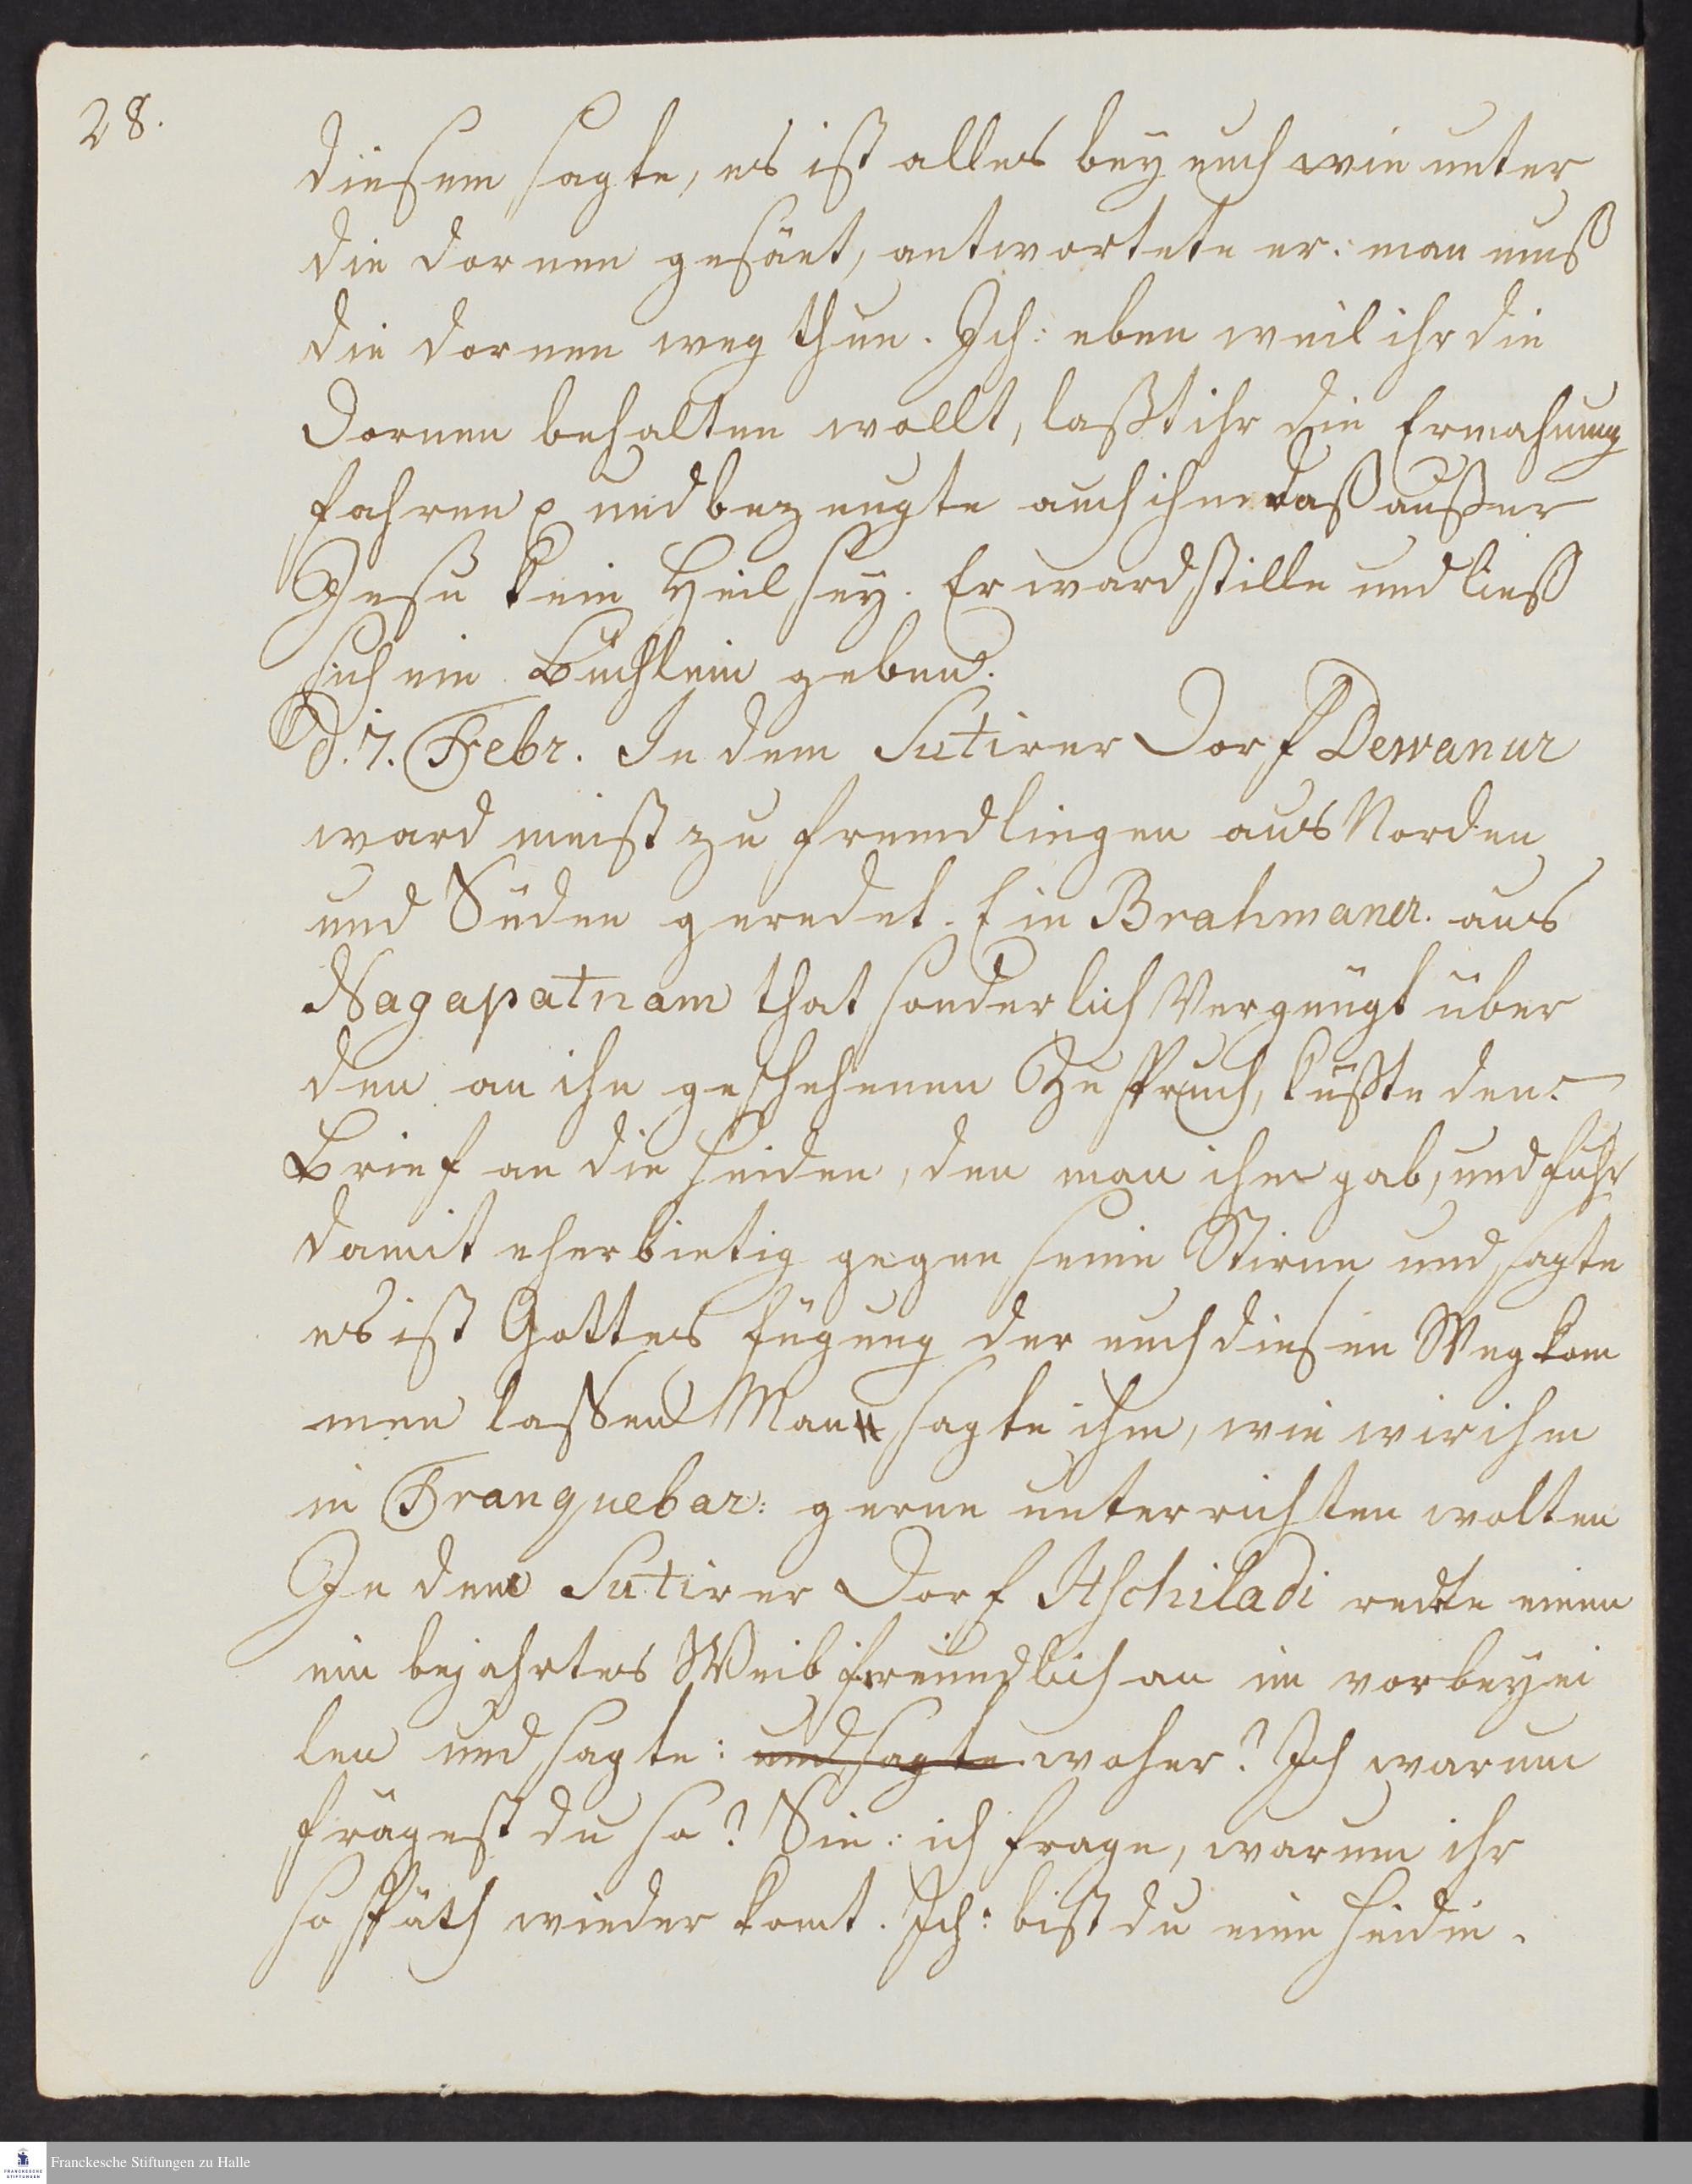 28.
diesem sagte, es ist alles bey euch wie unter
die dornen gesäet, antwortete er: man muß
die dornen weg thun. Ich: eben weil ihr die
Dornen behalten wollt, laßt ihr die Ermahnung
fahren und bezeugte auch ihm daß außer
Jesu kein Heil sey. Er ward stille und ließ
sich ein Büchlein geben.
D. 7. Febr. In dem Sutirer Dorf Dewanur
ward meist zu fremdlingen aus Norden
und Süden geredet. Ein Brahmaner. aus
Nagapatnam that sonderlich Vergnügt über
den an ihn geschehenen Zuspruch, küßte den
Brief an die Heiden, den man ihm gab, und fuhr
damit eherbietig gegen seine Stirne und sagte
es ist Gottes fügung der euch diesen Weg kom
men laßen Man sagte ihm, wie wir ihn
in Tranquebar: gerne unterrichten wolten
In dem Sutirer Dorf Aschiladi redte einen
ein bejahrtes Weib freundlich an im vorbeyei
len und sagte: und sagte woher? Ich warum
frägest du so? Sie: ich frage, warum ihr
so späth wieder komt. Ich: bist du eine Heidin.
Franckesche Stiftungen zu Halle
FRANCKESCHE
STIFTUNGEN